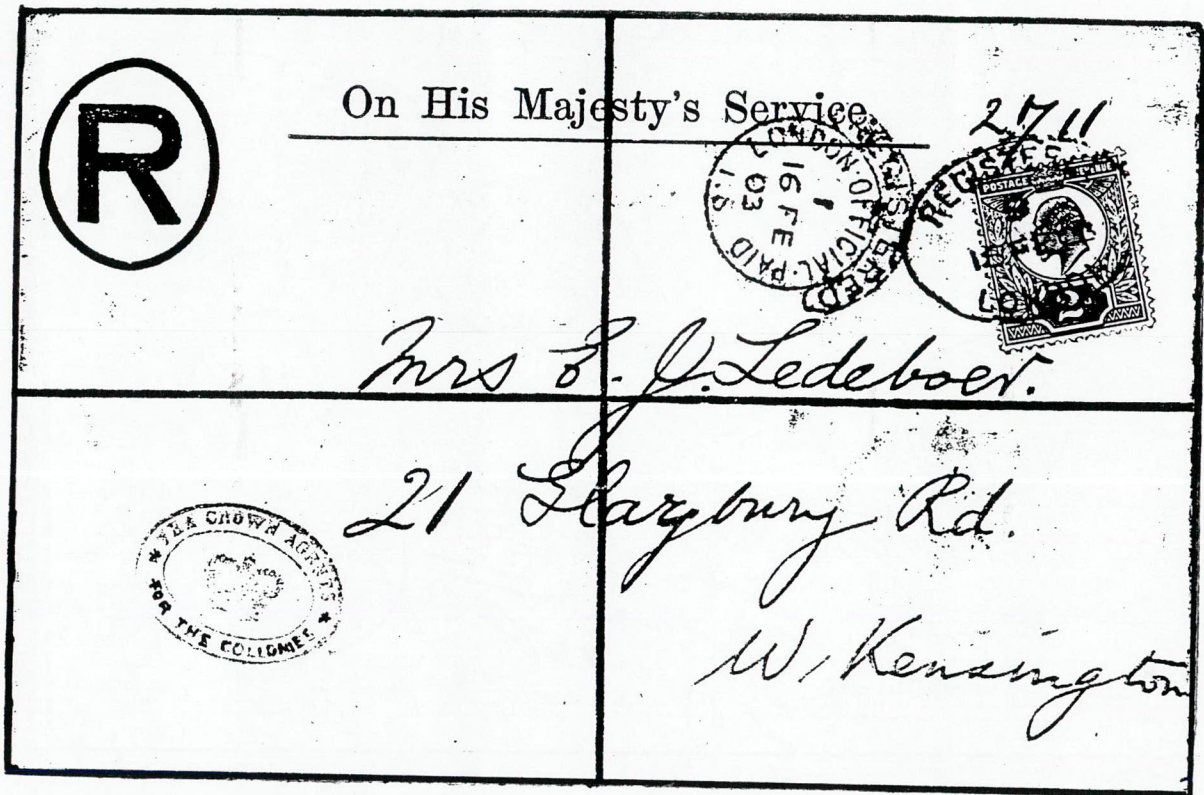 R
On His Majesty's Service
2711
LONDON·OFFICIAL·PAID
I.S.
1
16 FE
03
REGISTERED
REGISTE
POSTAGE
LONDON
2
Mrs E. J. Ledeboer.
21 Glazbury Rd.
W. Kensington
CROWN AGENTS
FOR THE COLLONIES